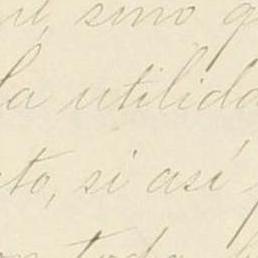 sino
la utilida
to, si así
toda